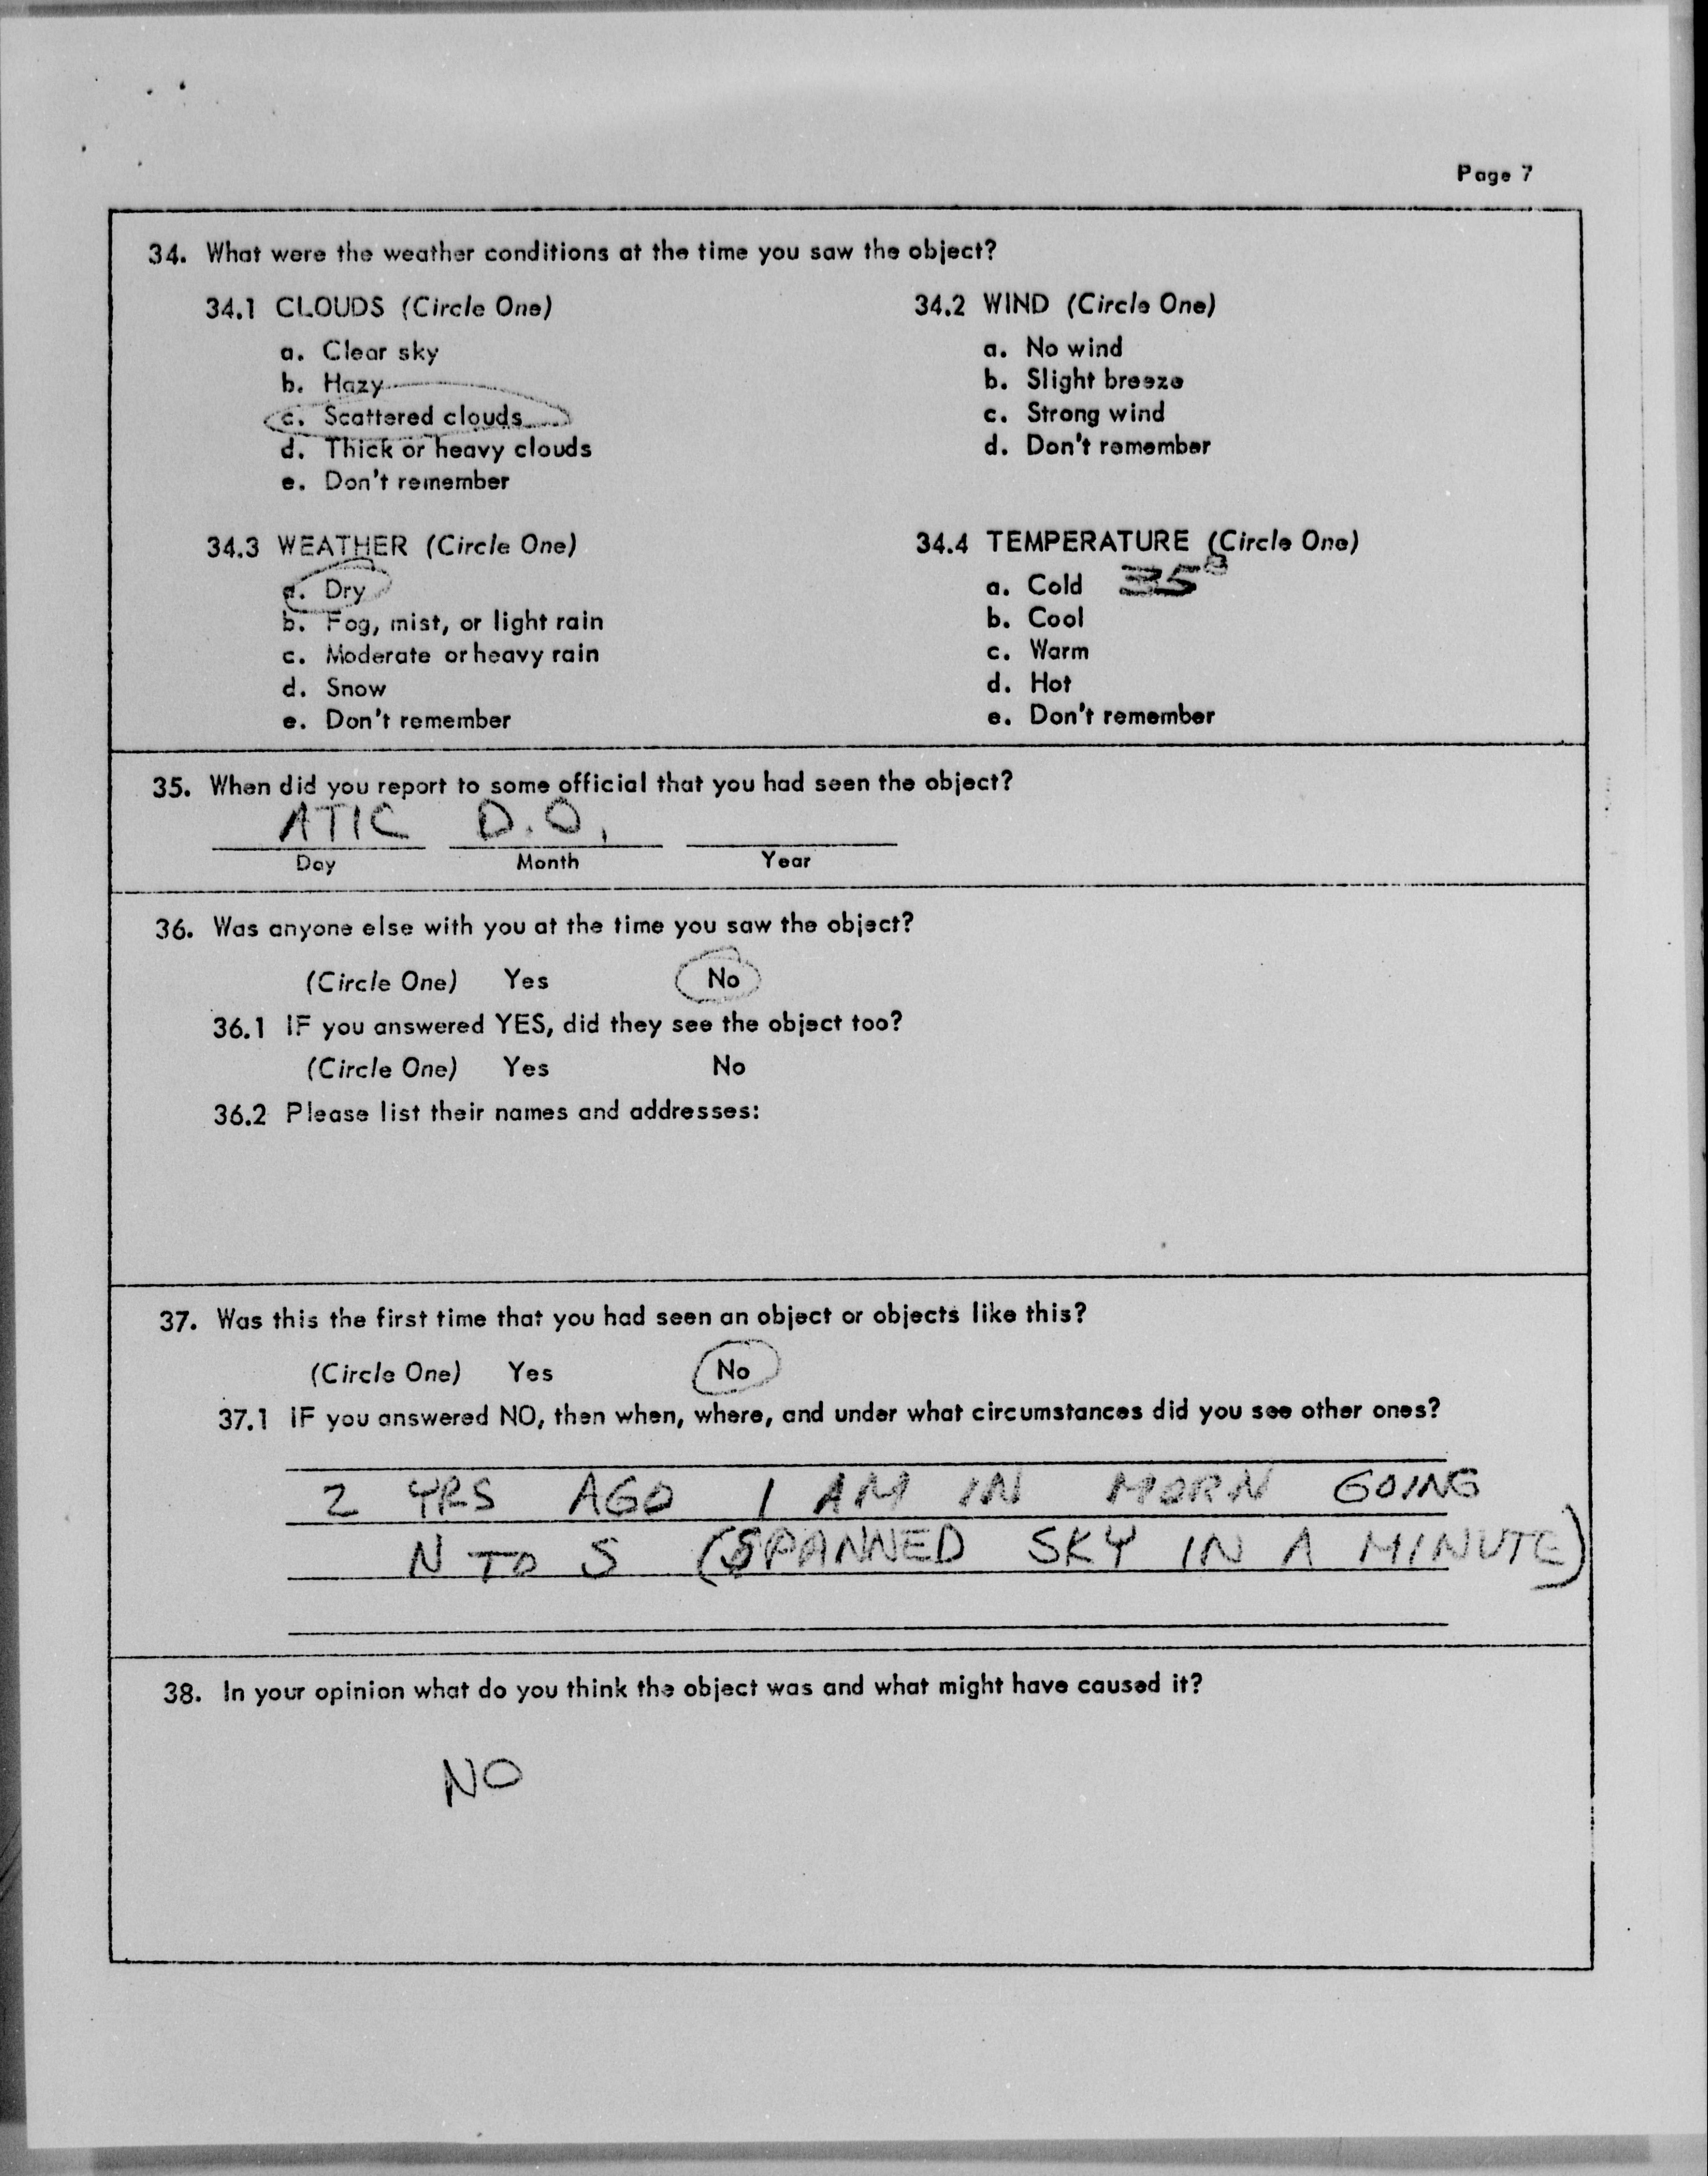 Page 7
34. What were the weather conditions at the time you saw the object?
34.1 CLOUDS (Circle One)
a. Clear sky
b. Hazy
c. Scattered clouds
d. Thick or heavy clouds
e. Don't remember
34.2 WIND (Circle One)
a. No wind
b. Slight breeze
c. Strong wind
d. Don't remember
34.3 WEATHER (Circle One)
a. Dry
b. Fog, mist, or light rain
c. Moderate or heavy rain
d. Snow
e. Don't remember
34.4 TEMPERATURE (Circle One)
a. Cold 35°
b. Cool
c. Warm
d. Hot
e. Don't remember
35. When did you report to some official that you had seen the object?
ATIC D.O.
Day Month Year
36. Was anyone else with you at the time you saw the object?
(Circle One) Yes No
36.1 IF you answered YES, did they see the object too?
(Circle One) Yes No
36.2 Please list their names and addresses:
37. Was this the first time that you had seen an object or objects like this?
(Circle One) Yes No
37.1 IF you answered NO, then when, where, and under what circumstances did you see other ones?
2 YRS AGO 1 AM IN MORN GOING
N TO S (SPANNED SKY IN A MINUTE)
38. In your opinion what do you think the object was and what might have caused it?
NO